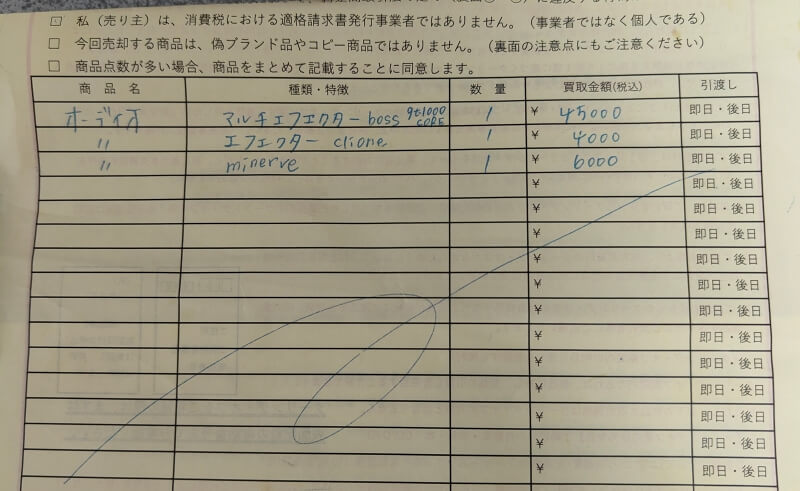 ☑ 私（売り主）は、消費税における適格請求書発行事業者ではありません。（事業者ではなく個人である）
☐ 今回売却する商品は、偽ブランド品やコピー商品ではありません。（裏面の注意点にもご注意ください）
☐ 商品点数が多い場合、商品をまとめて記載することに同意します。
商品名 種類・特徴 数量 買取金額(税込) 引渡し
オーディオ マルチエフェクターboss gt1000 CORE 1 ¥ 45000 即日・後日
〃 エフェクター clione 1 ¥ 4000 即日・後日
〃 minerve 1 ¥ 6000 即日・後日
¥ 即日・後日
¥ 即日・後日
¥ 即日・後日
¥ 即日・後日
¥ 即日・後日
¥ 即日・後日
¥ 即日・後日
¥ 即日・後日
¥ 即日・後日
¥ 即日・後日
¥ 即日・後日
¥ 即日・後日